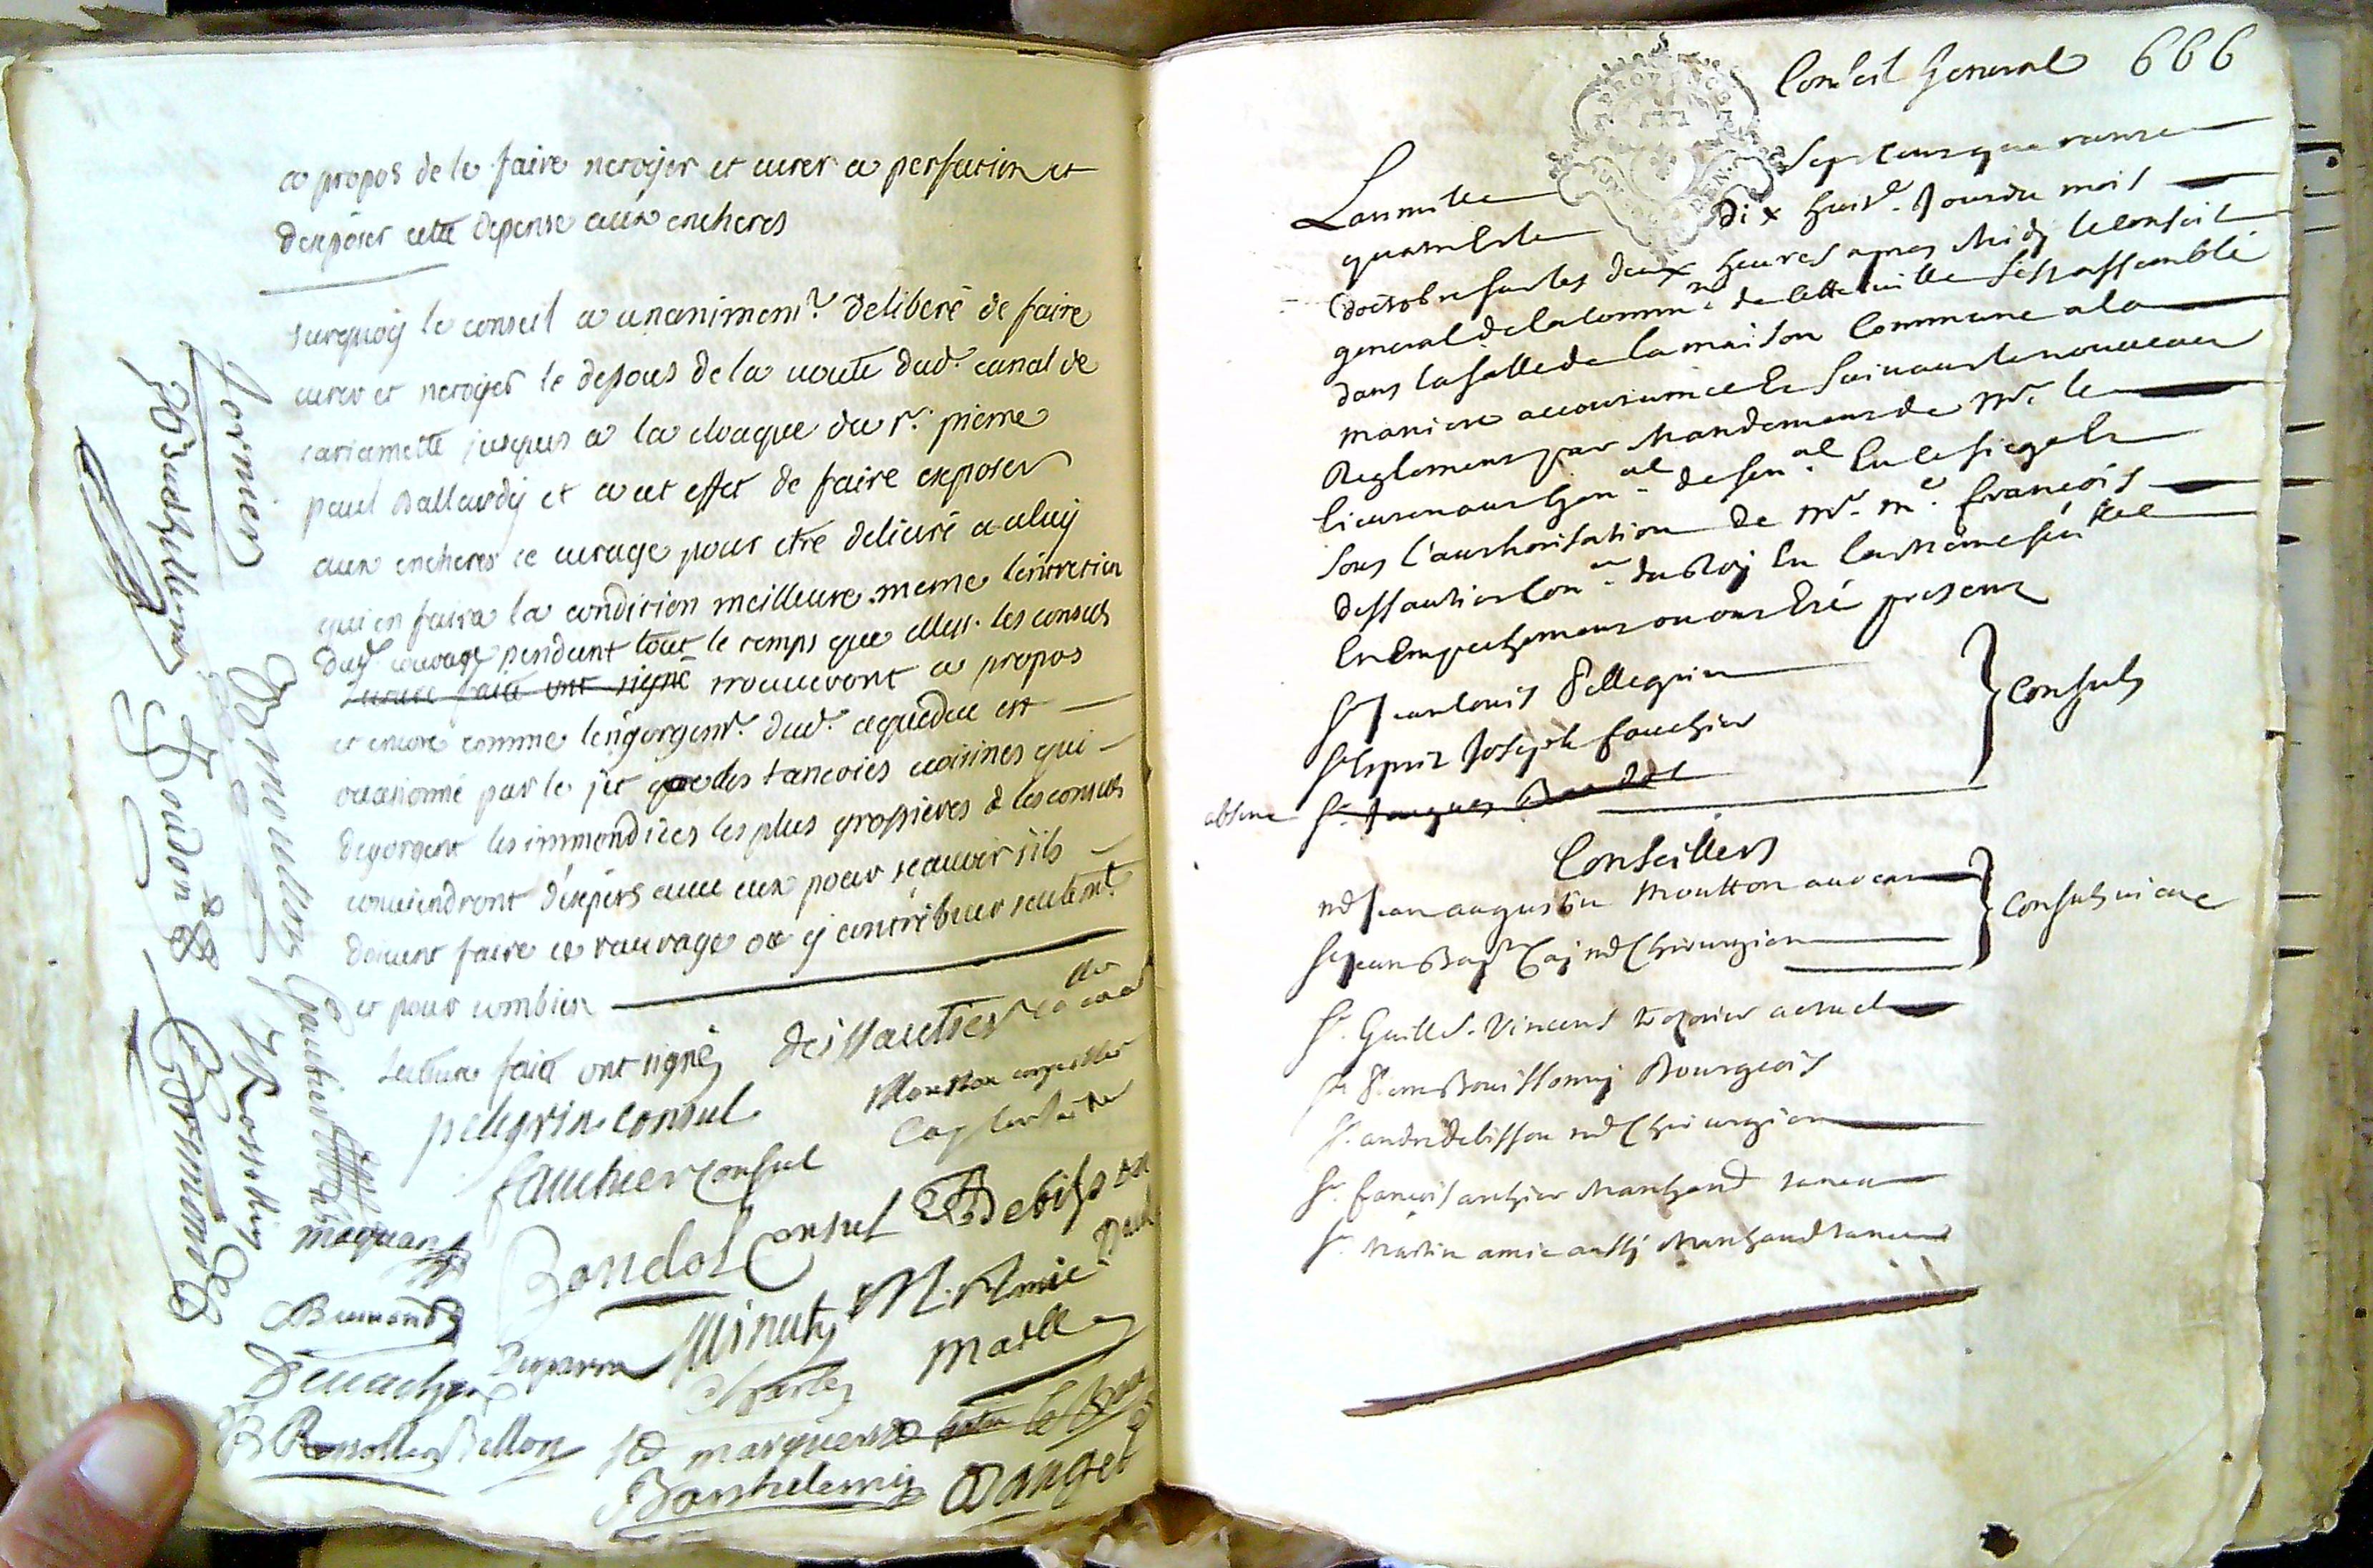 a propos de le faire netoyer et curer a perfection et
d'exposer cette depense aux encheres
surquoy le conseil a unanimemt. deliberé de faire
curer et netoyer le desous de la voute dud. canal de
cariamette jusques a la cloaque du sr. pierre
paul Ballardy et a cet effet de faire exposer
aux encheres ce curage pour etre delivré a celuy
qui en faira la condition meilleure meme l'entretien
dud. curage pendant tout le temps que mess. les consuls
Lecture faite ont signé trouveront a propos
et encore comme l'engorgemt. dud. aqueduc est
occasionné par le jet que les taneries voisines qui
degorgent les immondices les plus grossieres & les consuls
conviendront d'experts avec eux pour scavoir s'ils
doivent faire ce rauvage ou y contribuer seulemt.
et pour combien
Lecture faite ont signés
deissautier
pelegrin consul
Moutton conseiller
fauchier consul
Bondol Consul
Debisson
maquan
Minuty
M. Amic
Bremond
Maille
Charles
B Rossollin
Bellon
marquerse
Barthelemy
Danget
fornier
Boudon
Gautier
Rossollin
Conseil General 666
PROVENCE
Lan mille Sept cens quarante
quatre et le dix huite. Jour du mois
doctobre sur les deux heures apres Midy le conseil
general de la commnte. de cette ville s'est assemblé
dans la salle de la maison Commune a la
maniere accoutumée et suivant le nouveau
Reglement par Mandement de Mr. le
lieutenant gen.al de sen.al en ce siege et
sous l'authorisation de Mr. me. françois
deissautier con.er du Roy en la meme sen.
en Empechement ou ont Eté present
Sr Jean louis Pellegrin
Sr Esprit Joseph fauchier
consuls
absent Sr. Jacques Bondol
Conseillers
me Jean augustin Moutton avocat
Sr Jean Bapte Caj me Chirurgien
consuls vieux
Sr. Guille. Vincens tresorier actuel
Sr Pierre Bouissony Bourgeois
Sr. andre debisson me Chirurgien
Sr. francois authier Marchand taneur
Sr. Martin amic aussy Marchand taneur